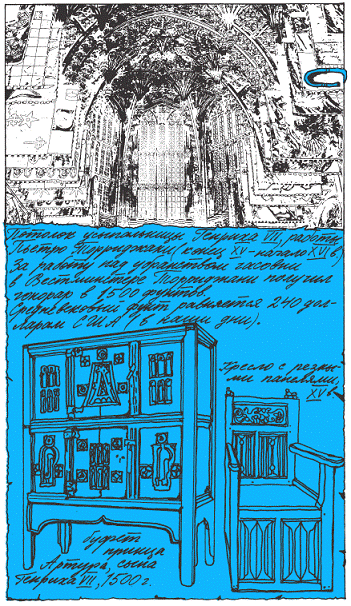 Потолок усыпальницы Генриха VII, работы
Пьетро Торриджани (конец XV – начало XVI в.)
За работу над убранством часовни
в Вестминстере Торриджани получил
гонорар в 1500 фунтов.
Средневековый фунт равняется 240 дол-
ларам США (в наши дни).
Кресло с резны-
ми панелями,
XV в.
буфет
принца
Артура, сына
Генриха VII, 1500 г.